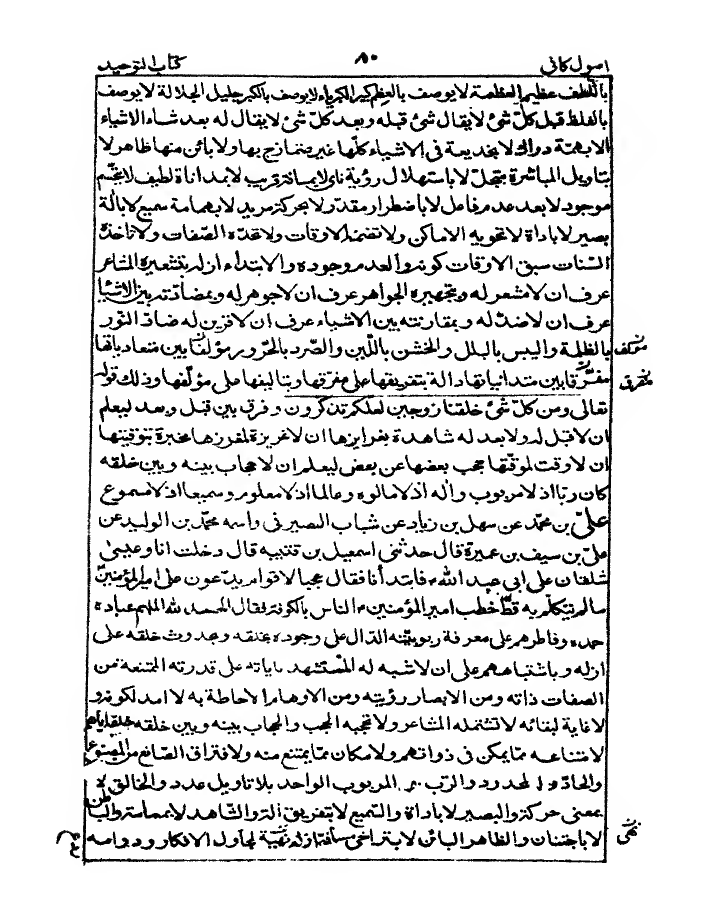 اصول كافى ٨٠ كتاب التوحيد
باللطف عظيم العظمة لا يوصف بالعظم كبير الكبرياء لا يوصف بالكبر جليل الجلالة لا يوصف
بالغلظ قبل كلّ شئ لا يقال شئ قبله وبعد كلّ شئ لا يقال له بعد شاء الاشياء
لا بهمّة دراك لا بخديعة فى الاشياء كلّها غير متمازج بها ولا بائن منها ظاهر لا
بتاويل المباشرة متجلّ لا باستهلال رؤية ناى لا بمسافة قريب لا بمداناة لطيف لا بتجسّم
موجود لا بعد عدم فاعل لا باضطرار مقدّر لا بحركة مريد لا بهمامة سميع لا بالة
بصير لا باداة لا تحويه الاماكن ولا تضمنه الاوقات ولا تحدّه الصّفات ولا تاخذه
السّنات سبق الاوقات كونه والعدم وجوده والابتداء ازله بتشعيره المشاعر
عرف ان لا مشعر له وبتجهيره الجواهر عرف ان لا جوهر له وبمضادّته بين الاشيا
عرف ان لا ضدّ له وبمقارنته بين الاشياء عرف ان لا قرين له ضادّ النّور
بالظلمة واليبس بالبلل والخشن باللّين والصّرد بالحرور مؤلفا بين متعادياتها
مؤلف
مفرّقا بين متدانياتها دالة بتفريقها على مفرّقها وبتاليفها على مؤلّفها وذلك قوله
مفرق
تعالى ومن كلّ شئ خلقنا زوجين لعلّكم تذكرون وفرق بين قبل وبعد ليعلم
ان لا قبل له ولا بعد له شاهدة بغرايزها ان لا غريزة لمغرزها مخبرة بتوقيتها
ان لا وقت لموقّتها حجب بعضها عن بعض ليعلم ان لا حجاب بينه وبين خلقه
كان ربّا اذ لا مربوب والٰه اذ لا مالوه وعالما اذ لا معلوم وسميعا اذ لا مسموع
علىّ بن محمّد عن سهل بن زياد عن شباب الصيرفى واسمه محمّد بن الوليد عن
علىّ بن سيف بن عميرة قال حدثنى اسمعيل بن قتيبه قال دخلت انا وعيسىٰ
شلقان على ابى عبد الله ء فابتدأنا فقال عجبا لاقوام يدّعون على امير المؤمنين
ما لم يتكلّم به قطّ خطب امير المؤمنين ء الناس بالكوفة فقال الحمد لله الملهم عباده
حمده وفاطرهم على معرفة ربوبيّته الدّال على وجوده بخلقه وبحدوث خلقه على
ازله وباشتباههم على ان لا شبه له المستشهد باياته على قدرته الممتنعة من
الصفات ذاته ومن الابصار رؤيته ومن الاوهام الاحاطة به لا امد لكونه و
لا غاية لبقائه لا تشتمله المشاعر ولا تحجبه الحجب والحجاب بينه وبين خلقه خلقه اياهم
لامتناعه ممّا يمكن فى ذواتهم ولامكان ممّا يمتنع منه ولافتراق الصّانع من المصنوع
والحادّ و المحدود والرّبّ المربوب الواحد بلا تاويل عدد والخالق لا
بمعنى حركة والبصير لا باداة والسّميع لا بتفريق الة والشّاهد لا بمماسة والباطن
لا باجتنان والظاهر البائن لا بتراخى مسافة ازله نهية لمجاول الافكار ودوامه
نهى